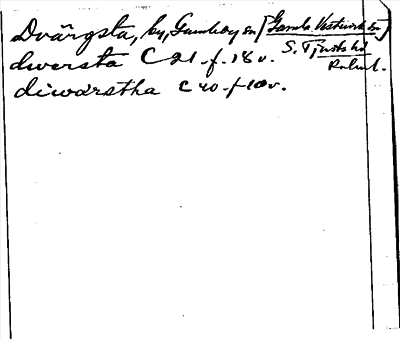 Dvärgsta, by, Gamleby sn [Gamla Västerviks sn]
S. Tjusts hd
dwersta C 21 f. 18 v. Kalm l.
diwarstha C 20 f 10 v.